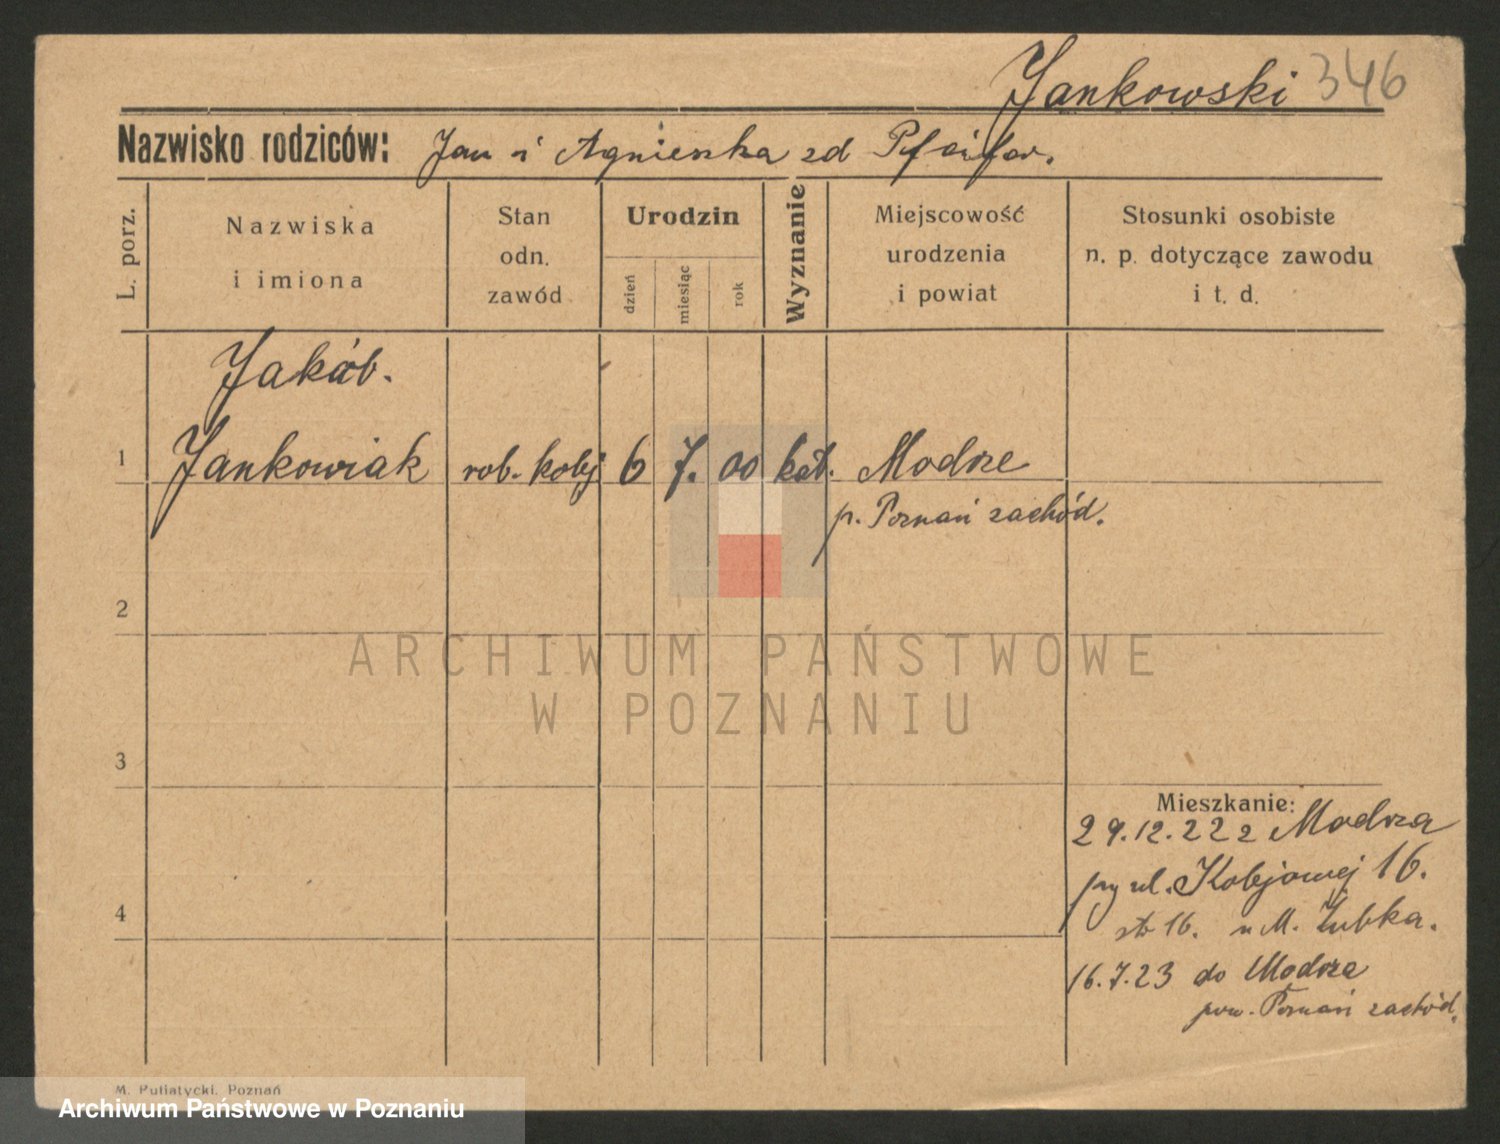 Jankowski 346
Nazwisko rodziców: Jan i Agnieszka zd Pfeifer.
L. porz.
Nazwiska
i imiona
Stan
odn.
zawód
Urodzin
dzień
miesiąc
rok
Wyznanie
Miejscowość
urodzenia
i powiat
Stosunki osobiste
n. p. dotyczące zawodu
i t. d.
Jakób.
1 Jankowiak rob. kolej 6 7. 00 kat. Modrze
p. Poznań zachód.
2
ARCHIWUM PAŃSTWOWE
W POZNANIU
3
Mieszkanie:
29.12.22 z Modrza
przy ul. Kolejowej 16.
16. u M. Zubka.
4
16.7.23 do Modrza
pow. Poznań zachód.
M. Putiatycki, Poznań
Archiwum Państwowe w Poznaniu